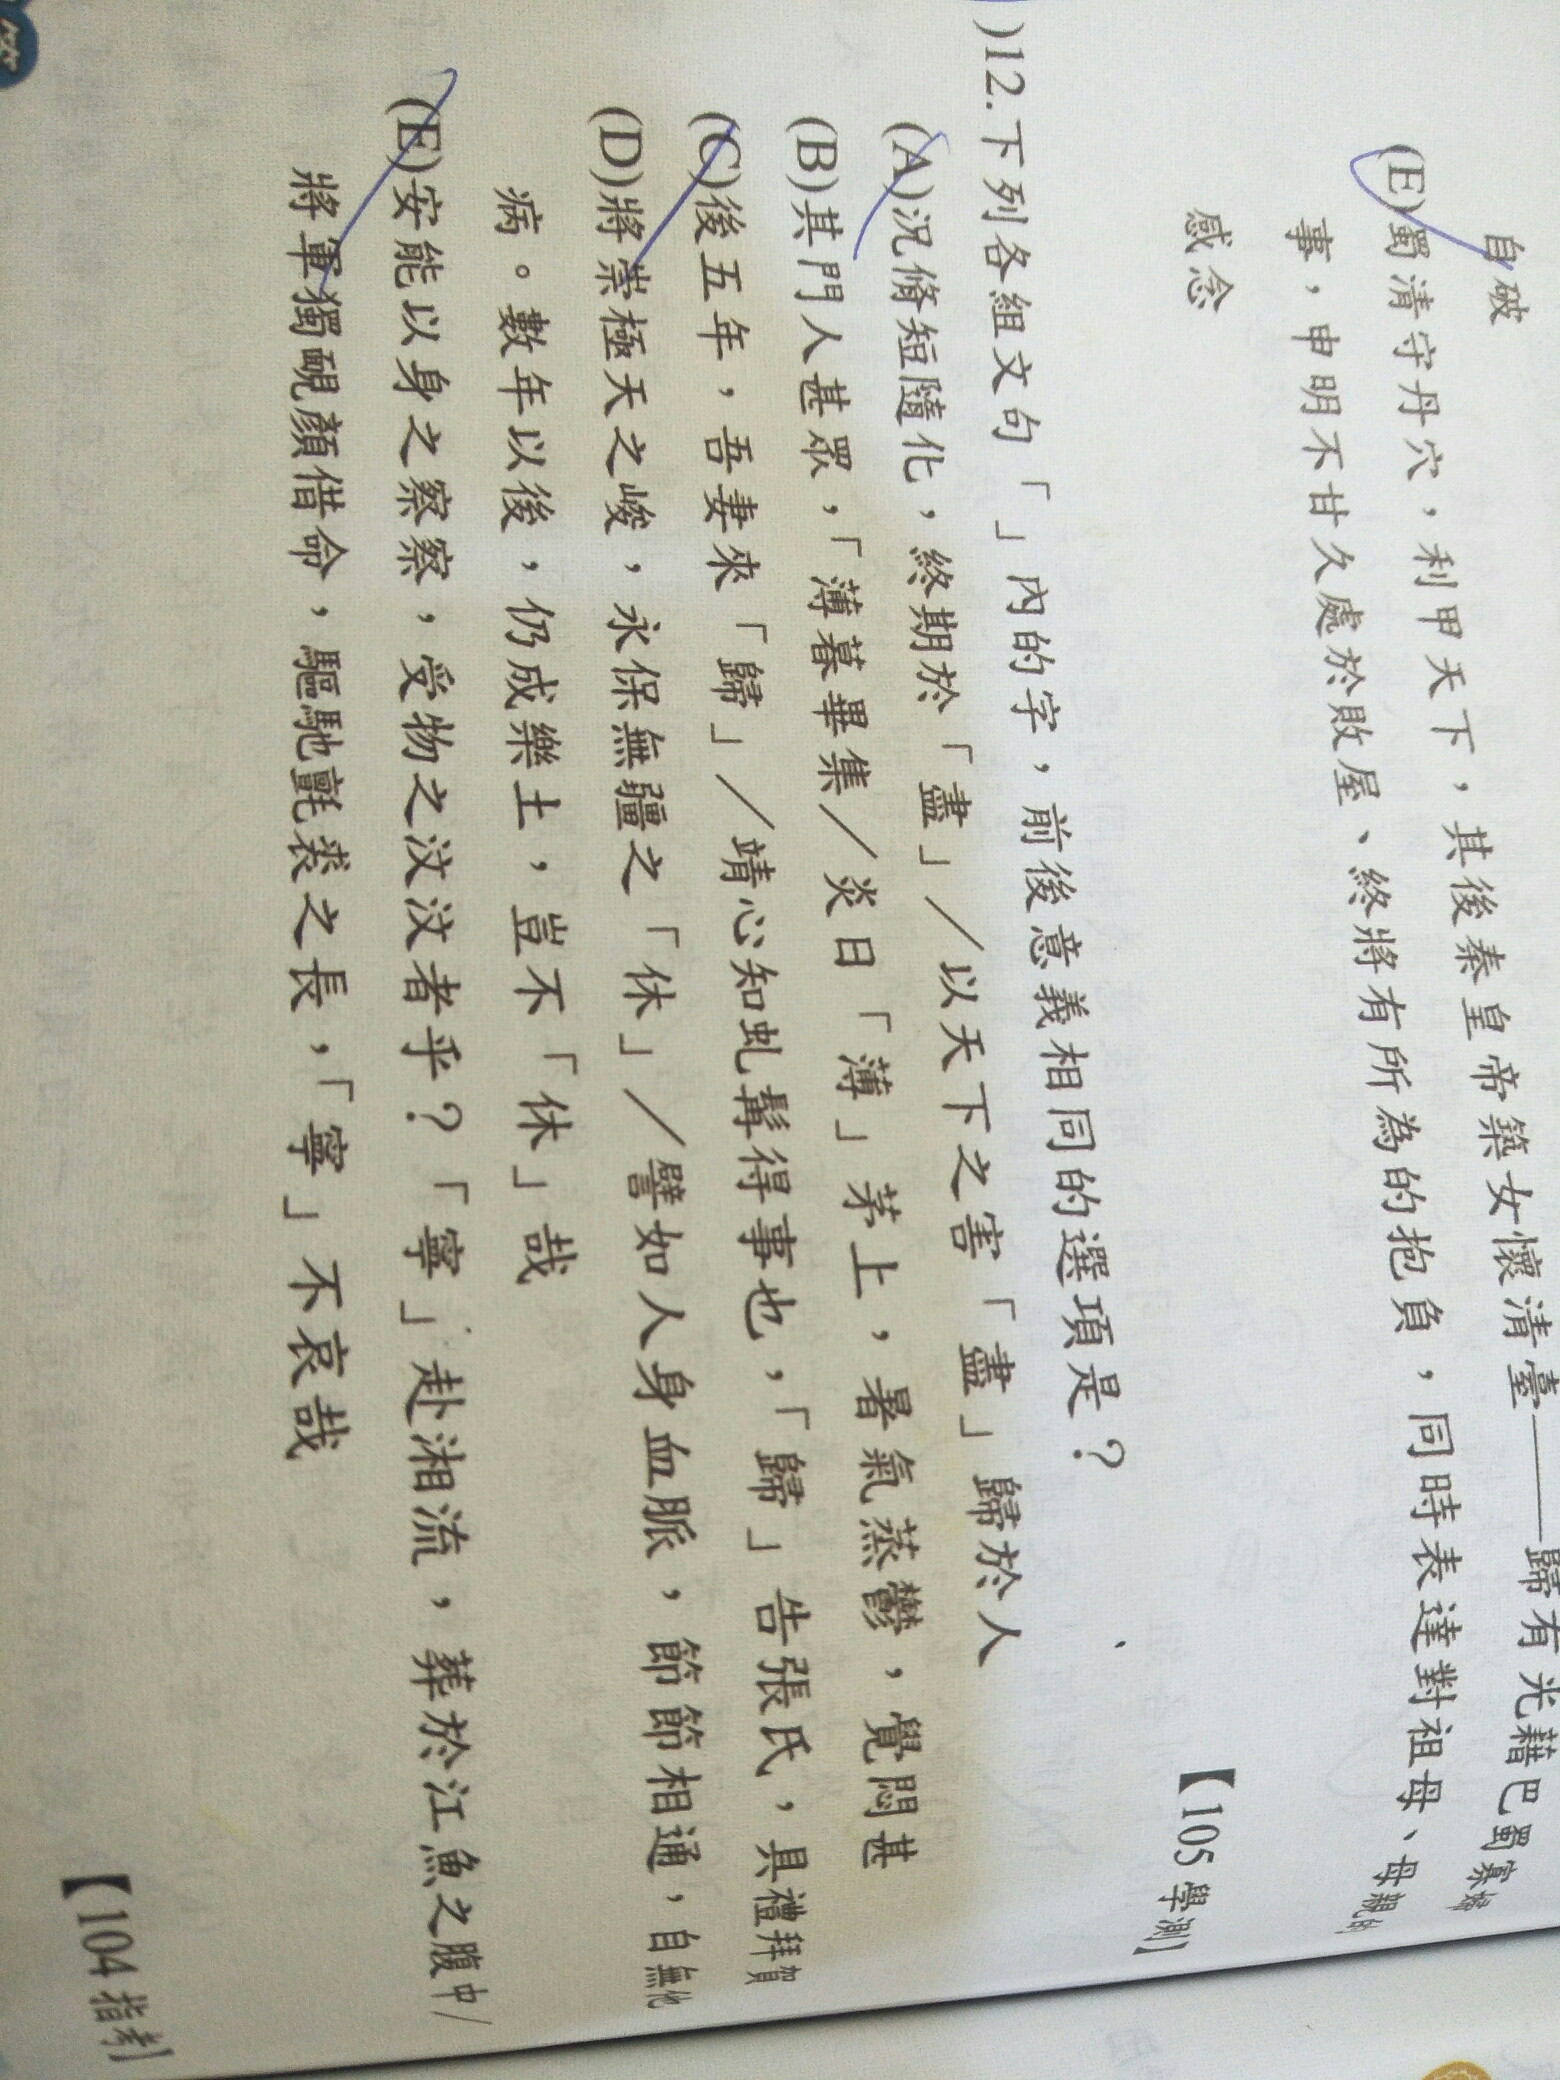 自破
(E)蜀清守丹穴，利甲天下，其後秦皇帝築女懷清臺——歸有光藉巴蜀寡婦
事，申明不甘久處於敗屋、終將有所為的抱負，同時表達對祖母、母親的
感念
【105學測】
)12.下列各組文句「」內的字，前後意義相同的選項是？
(A)況脩短隨化，終期於「盡」／以天下之害「盡」歸於人
(B)其門人甚眾，「薄暮畢集／炎日「薄」茅上，暑氣蒸鬱，覺悶甚
(C)後五年，吾妻來「歸」／靖心知虬髯得事也，「歸」告張氏，具禮拜賀
(D)將崇極天之峻，永保無疆之「休」／譬如人身血脈，節節相通，自無他
病。數年以後，仍成樂土，豈不「休」哉
(E)安能以身之察察，受物之汶汶者乎？「寧」赴湘流，葬於江魚之腹中/
將軍獨靦顏借命，驅馳氈裘之長，「寧」不哀哉
【104指考】